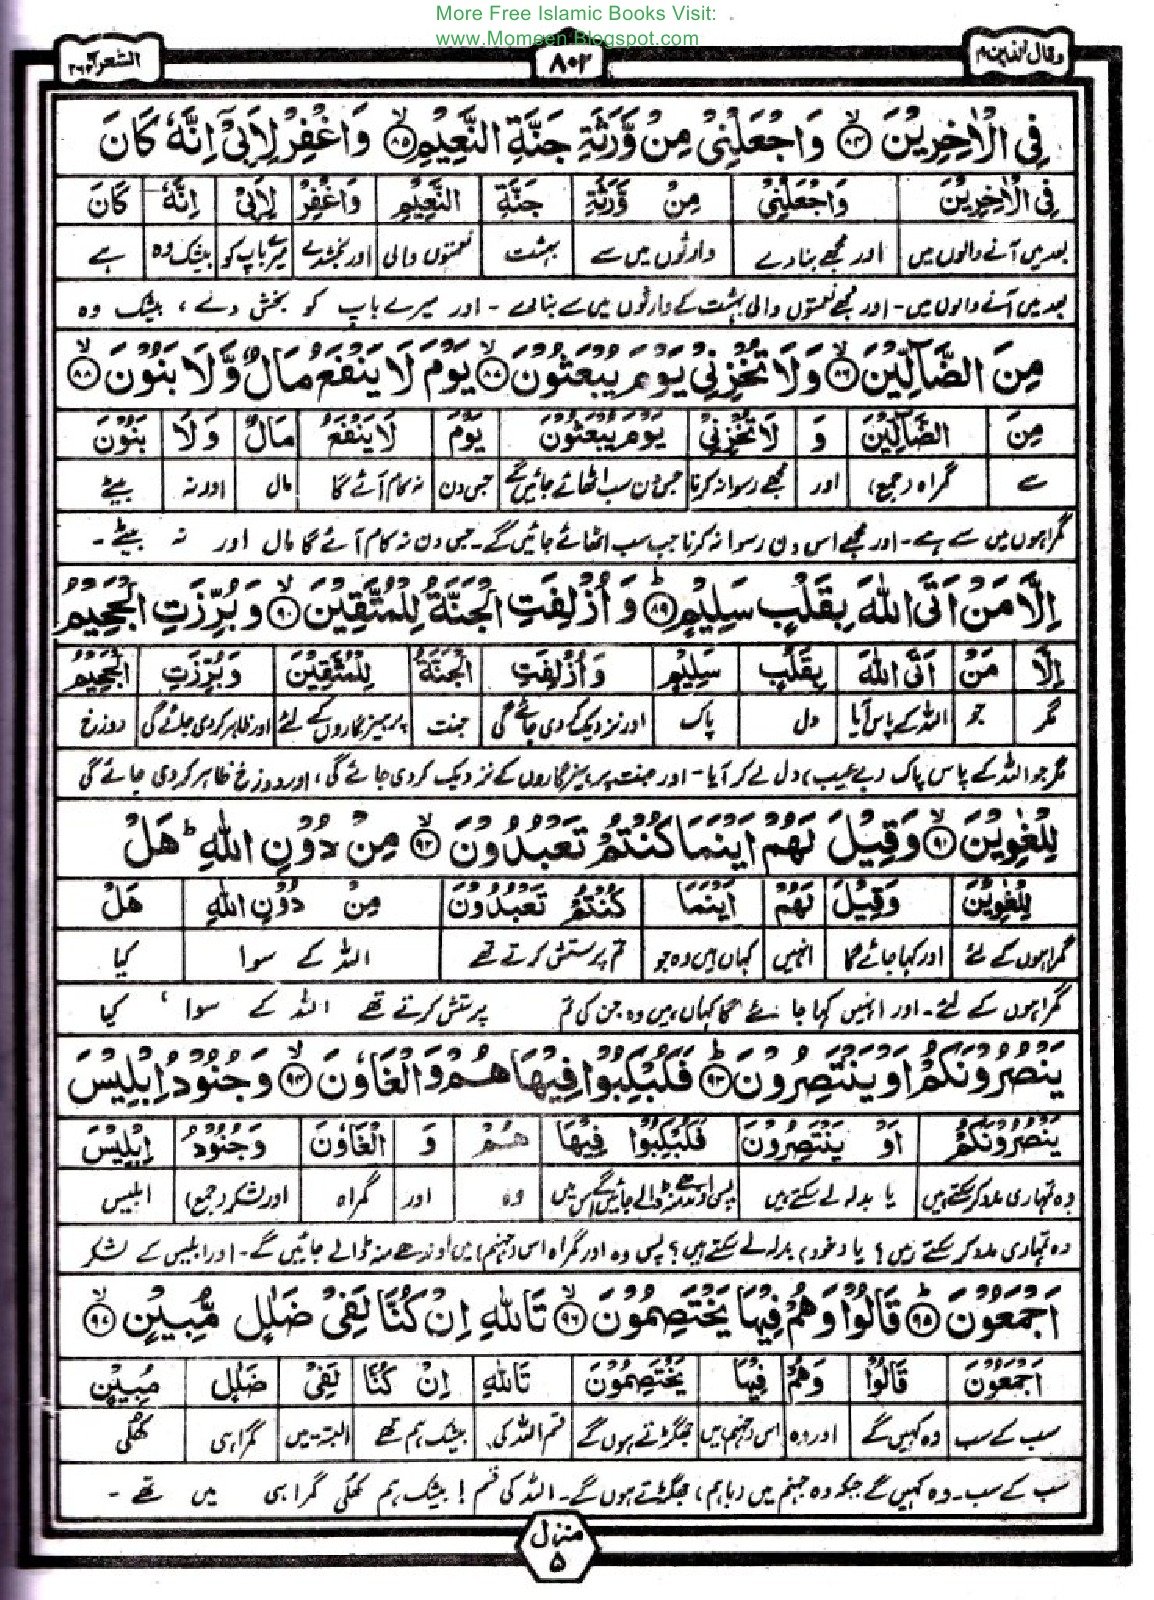 More Free Islamic Books Visit:
www.Momeen.Blogspot.com
وقال الذین ۱۹
۸۰۲
الشعرآء ۲۶
فِی الْاٰخِرِیْنَ ﴿۸۴﴾ وَاجْعَلْنِیْ مِنْ وَّرَثَةِ جَنَّةِ النَّعِیْمِ ﴿۸۵﴾ وَاغْفِرْ لِاَبِیْٓ اِنَّهٗ كَانَ
فِی الْاٰخِرِیْنَ وَاجْعَلْنِیْ مِنْ وَّرَثَةِ جَنَّةِ النَّعِیْمِ وَاغْفِرْ لِاَبِیْ اِنَّهٗ كَانَ
بعد میں آنے والوں میں اور مجھے بنا دے وارثوں میں سے بہشت نعمتوں والی اور بخشدے میرے باپ کو بیشک وہ ہے
بعد میں آنے والوں میں - اور مجھے نعمتوں والی بہشت کے وارثوں میں سے بنا دے - اور میرے باپ کو بخش دے ، بیشک وہ
مِنَ الضَّآلِّیْنَ ﴿۸۶﴾ وَلَا تُخْزِنِیْ یَوْمَ یُبْعَثُوْنَ ﴿۸۷﴾ یَوْمَ لَا یَنْفَعُ مَالٌ وَّلَا بَنُوْنَ ﴿۸۸﴾
مِنَ الضَّآلِّیْنَ وَ لَا تُخْزِنِیْ یَوْمَ یُبْعَثُوْنَ یَوْمَ لَا یَنْفَعُ مَالٌ وَلَا بَنُوْنَ
سے گمراہ (جمع) اور مجھے رسوا نہ کرنا جس دن سب اٹھائے جائیں گے جس دن نہ کام آئے گا مال اور نہ بیٹے
گمراہوں میں سے ہے - اور مجھے اس دن رسوا نہ کرنا جب سب اٹھائے جائیں گے - جس دن نہ کام آئے گا مال اور نہ بیٹے -
اِلَّا مَنْ اَتَى اللّٰهَ بِقَلْبٍ سَلِیْمٍ ﴿۸۹﴾ وَاُزْلِفَتِ الْجَنَّةُ لِلْمُتَّقِیْنَ ﴿۹۰﴾ وَبُرِّزَتِ الْجَحِیْمُ
اِلَّا مَنْ اَتَى اللّٰهَ بِقَلْبٍ سَلِیْمٍ وَاُزْلِفَتِ الْجَنَّةُ لِلْمُتَّقِیْنَ وَبُرِّزَتِ الْجَحِیْمُ
مگر جو اللہ کے پاس آیا دل پاک اور نزدیک کر دی جائے گی جنت پرہیزگاروں کے لئے اور ظاہر کر دی جائے گی دوزخ
مگر جو اللہ کے پاس پاک (بے عیب) دل لے کر آیا - اور جنت پرہیزگاروں کے نزدیک کر دی جائے گی ، اور دوزخ ظاہر کر دی جائے گی
لِلْغٰوِیْنَ ﴿۹۱﴾ وَقِیْلَ لَهُمْ اَیْنَمَا كُنْتُمْ تَعْبُدُوْنَ ﴿۹۲﴾ مِنْ دُوْنِ اللّٰهِ ؕ هَلْ
لِلْغٰوِیْنَ وَقِیْلَ لَهُمْ اَیْنَمَا كُنْتُمْ تَعْبُدُوْنَ مِنْ دُوْنِ اللّٰهِ هَلْ
گمراہوں کے لئے اور کہا جائے گا انہیں کہاں ہیں وہ جو تم پرستش کرتے تھے اللہ کے سوا کیا
گمراہوں کے لئے - اور انہیں کہا جائے گا کہاں ہیں وہ جن کی تم پرستش کرتے تھے اللہ کے سوا ، کیا
یَنْصُرُوْنَكُمْ اَوْ یَنْتَصِرُوْنَ ﴿۹۳﴾ فَكُبْكِبُوْا فِیْهَا هُمْ وَالْغَاوٗنَ ﴿۹۴﴾ وَجُنُوْدُ اِبْلِیْسَ
یَنْصُرُوْنَكُمْ اَوْ یَنْتَصِرُوْنَ فَكُبْكِبُوْا فِیْهَا هُمْ وَ الْغَاوٗنَ وَجُنُوْدُ اِبْلِیْسَ
وہ تمہاری مدد کر سکتے ہیں یا بدلہ لے سکتے ہیں پس اوندھے منہ ڈالے جائیں گے اس میں وہ اور گمراہ اور لشکر (جمع) ابلیس
وہ تمہاری مدد کر سکتے ہیں ؟ یا (خود) بدلہ لے سکتے ہیں ؟ پس وہ اور گمراہ اس (جہنم) میں اوندھے منہ ڈالے جائیں گے - اور ابلیس کے لشکر
اَجْمَعُوْنَ ﴿۹۵﴾ قَالُوْا وَهُمْ فِیْهَا یَخْتَصِمُوْنَ ﴿۹۶﴾ تَاللّٰهِ اِنْ كُنَّا لَفِیْ ضَلٰلٍ مُّبِیْنٍ ﴿۹۷﴾
اَجْمَعُوْنَ قَالُوْا وَهُمْ فِیْهَا یَخْتَصِمُوْنَ تَاللّٰهِ اِنْ كُنَّا لَفِیْ ضَلٰلٍ مُّبِیْنٍ
سب کے سب وہ کہیں گے اور وہ اس (جہنم) میں جھگڑتے ہوں گے قسم اللہ کی بیشک ہم تھے البتہ میں گمراہی کھلی
سب کے سب - وہ کہیں گے جبکہ وہ جہنم میں (باہم) جھگڑتے ہوں گے - اللہ کی قسم ! بیشک ہم کھلی گمراہی میں تھے -
منزل
۵